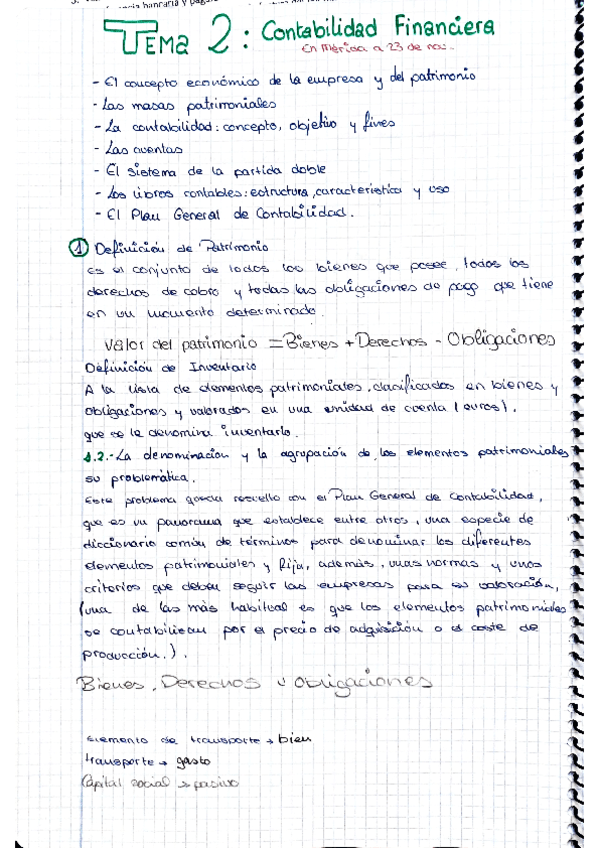 bancaria y pag
TEMA 2: Contabilidad Financiera
En Mérida a 23 de no
- El concepto económico de la empresa y del patrimonio
- Las masas patrimoniales
- La contabilidad: concepto, objetivo y fines
- Las cuentas
- El sistema de la partida doble
- Los libros contables: estructura, característica y uso
- El Plan General de Contabilidad.
1 Definición de Patrimonio
Es el conjunto de todos los bienes que posee, todos los
derechos de cobro y todas las obligaciones de pago que tiene
en un momento determinado.
Valor del patrimonio = Bienes + Derechos - Obligaciones
Definición de Inventario
A la lista de elementos patrimoniales, clasificados en bienes y
obligaciones y valorados en una unidad de cuenta (euros),
que se le denomina inventario.
1.2.- La denominación y la agrupación de los elementos patrimoniales
su problemática.
Este problema queda resuelto con el Plan General de Contabilidad,
que es un panorama que establece entre otros, una especie de
diccionario común de términos para denominar los diferentes
elementos patrimoniales y fija, además, unas normas y unos
criterios que deben seguir las empresas para su valoración,
(una de las más habitual es que los elementos patrimoniales
se contabilizan por el precio de adquisición o el coste de
producción.).
Bienes, Derechos y Obligaciones
Elemento de transporte → bien
transporte → gasto
Capital social → pasivo